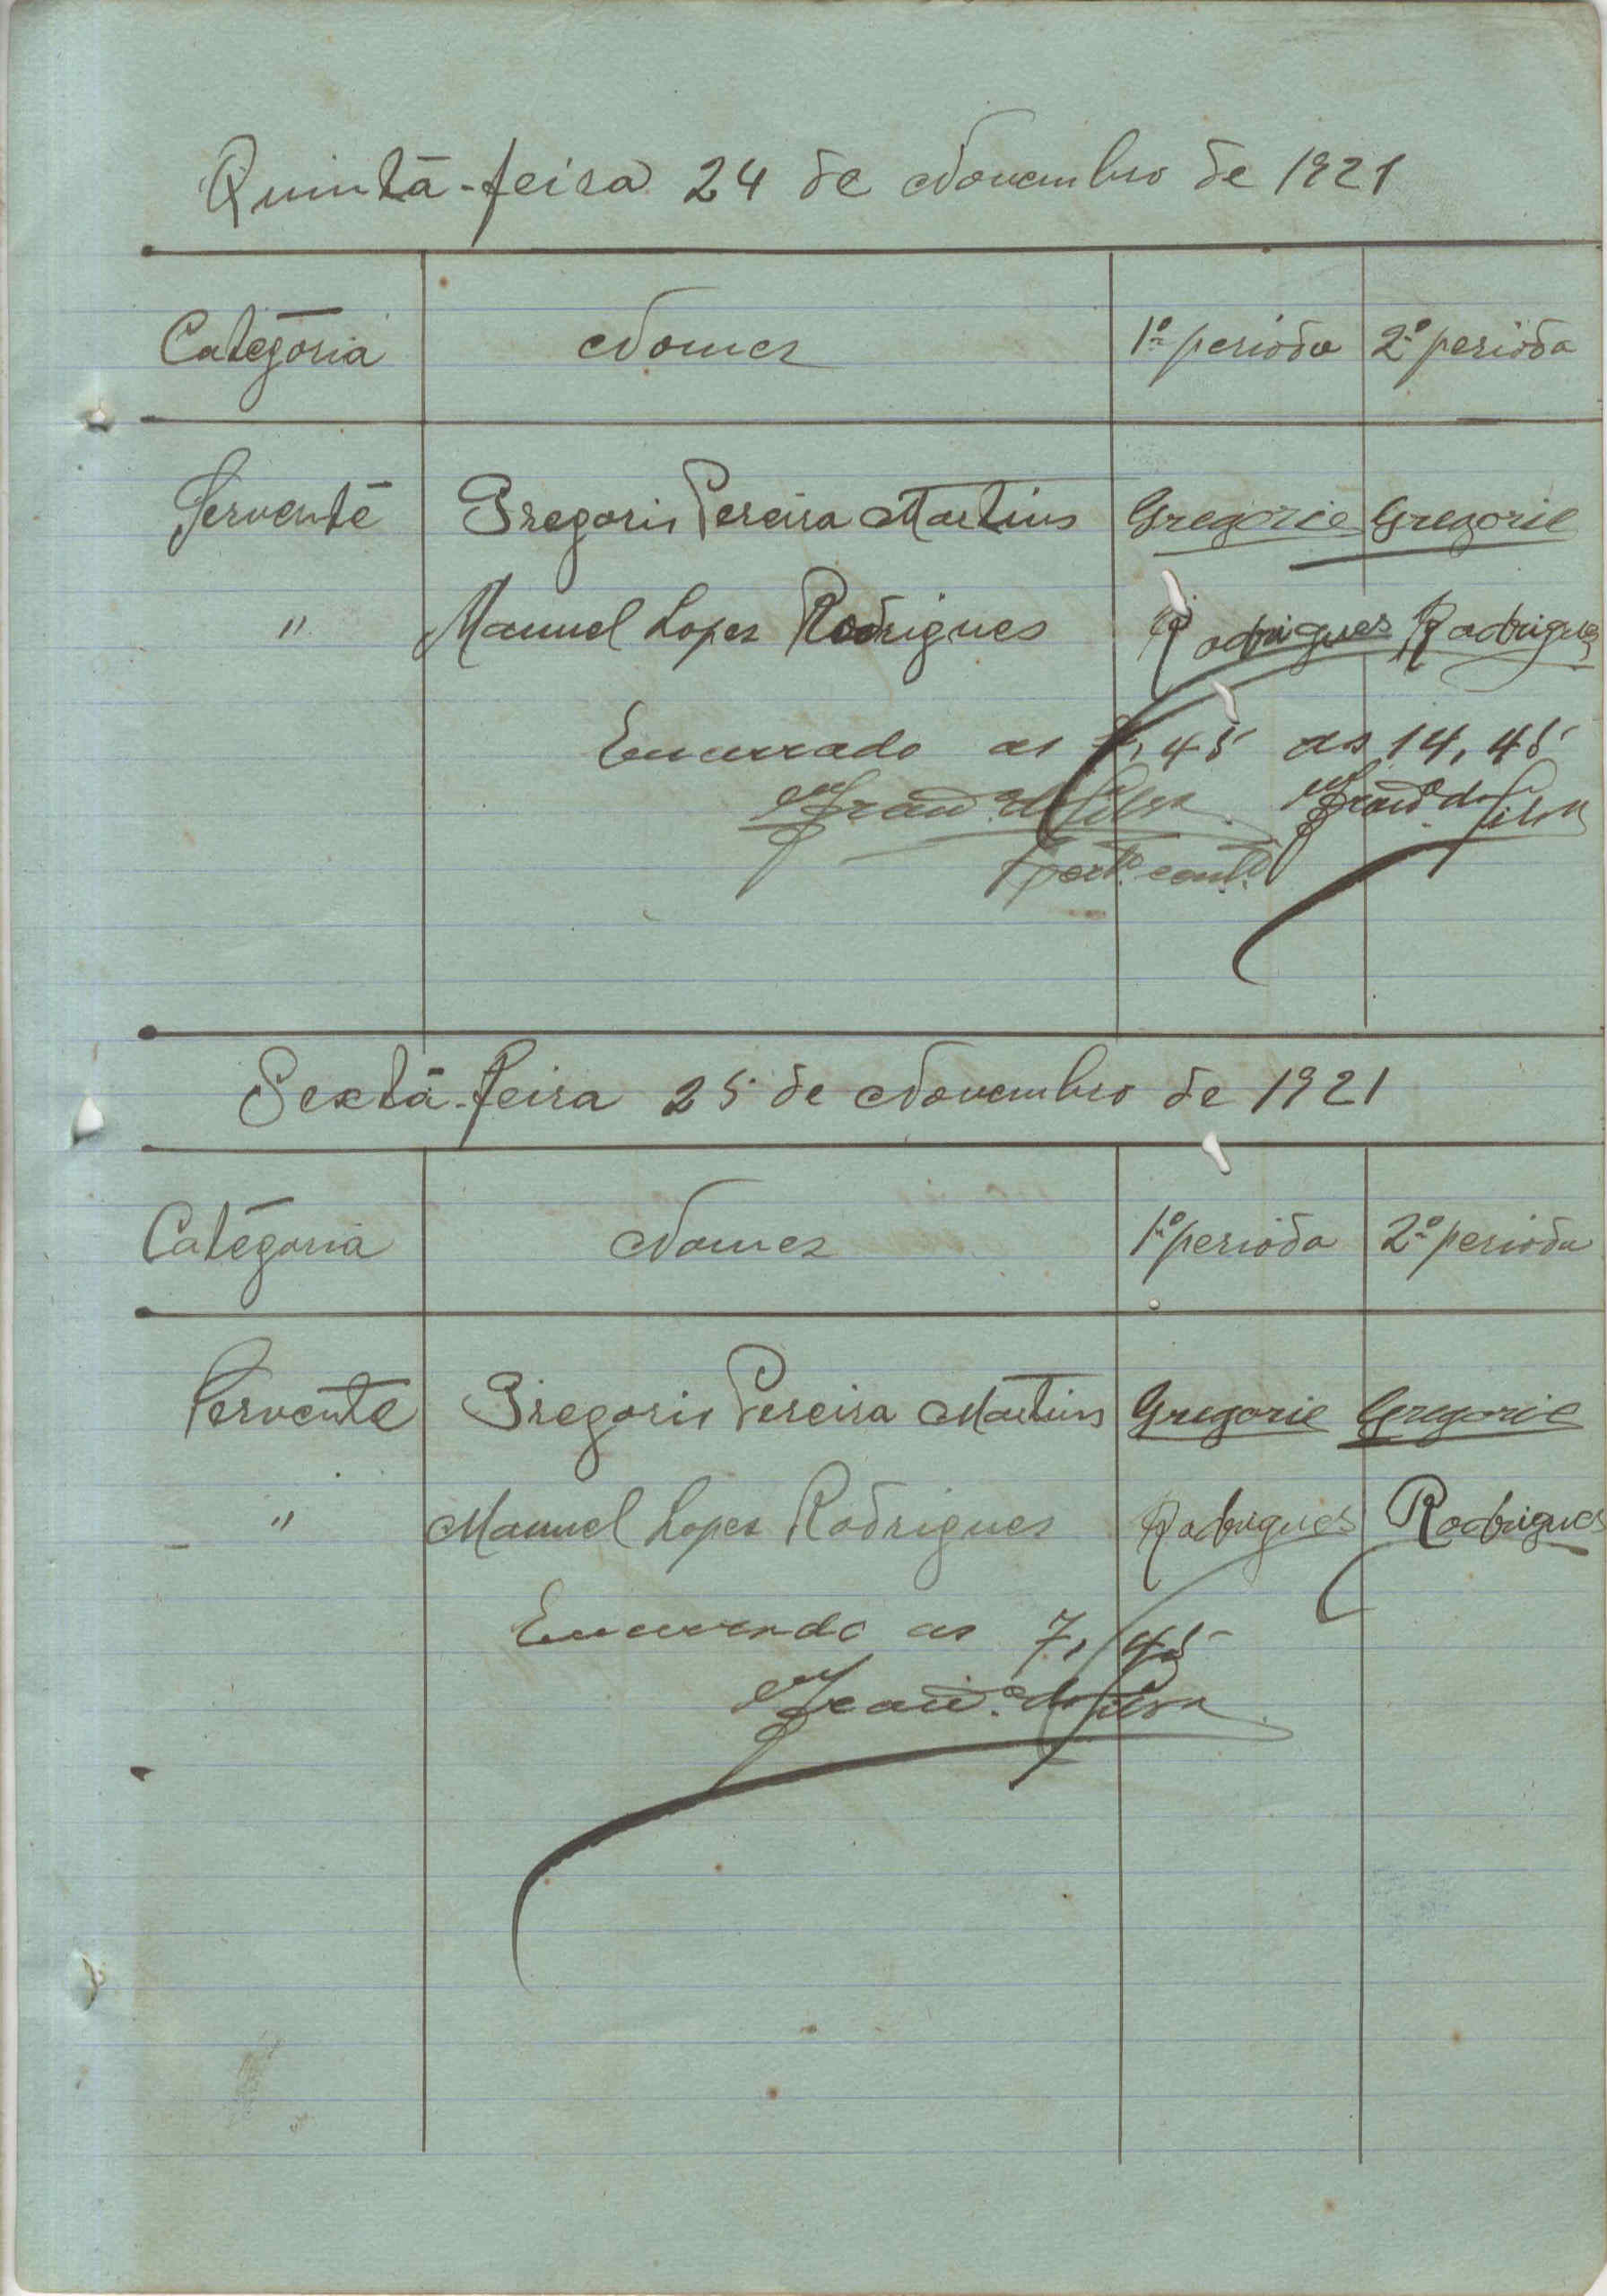 Quinta-feira 24 de Novembro de 1921
Categoria Nomes 1º periodo 2º periodo
Servente Gregorio Pereira Martins Gregorio Gregorio
" Manuel Lopes Rodrigues Rodrigues Rodrigues
Encerrado as 7,45 as 14,45
da Silva da Silva
Sexta-feira 25 de Novembro de 1921
Categoria Nomes 1º periodo 2º periodo
Servente Gregorio Pereira Martins Gregorio Gregorio
" Manuel Lopes Rodrigues Rodrigues Rodrigues
Encerrado as 7,45
da Silva